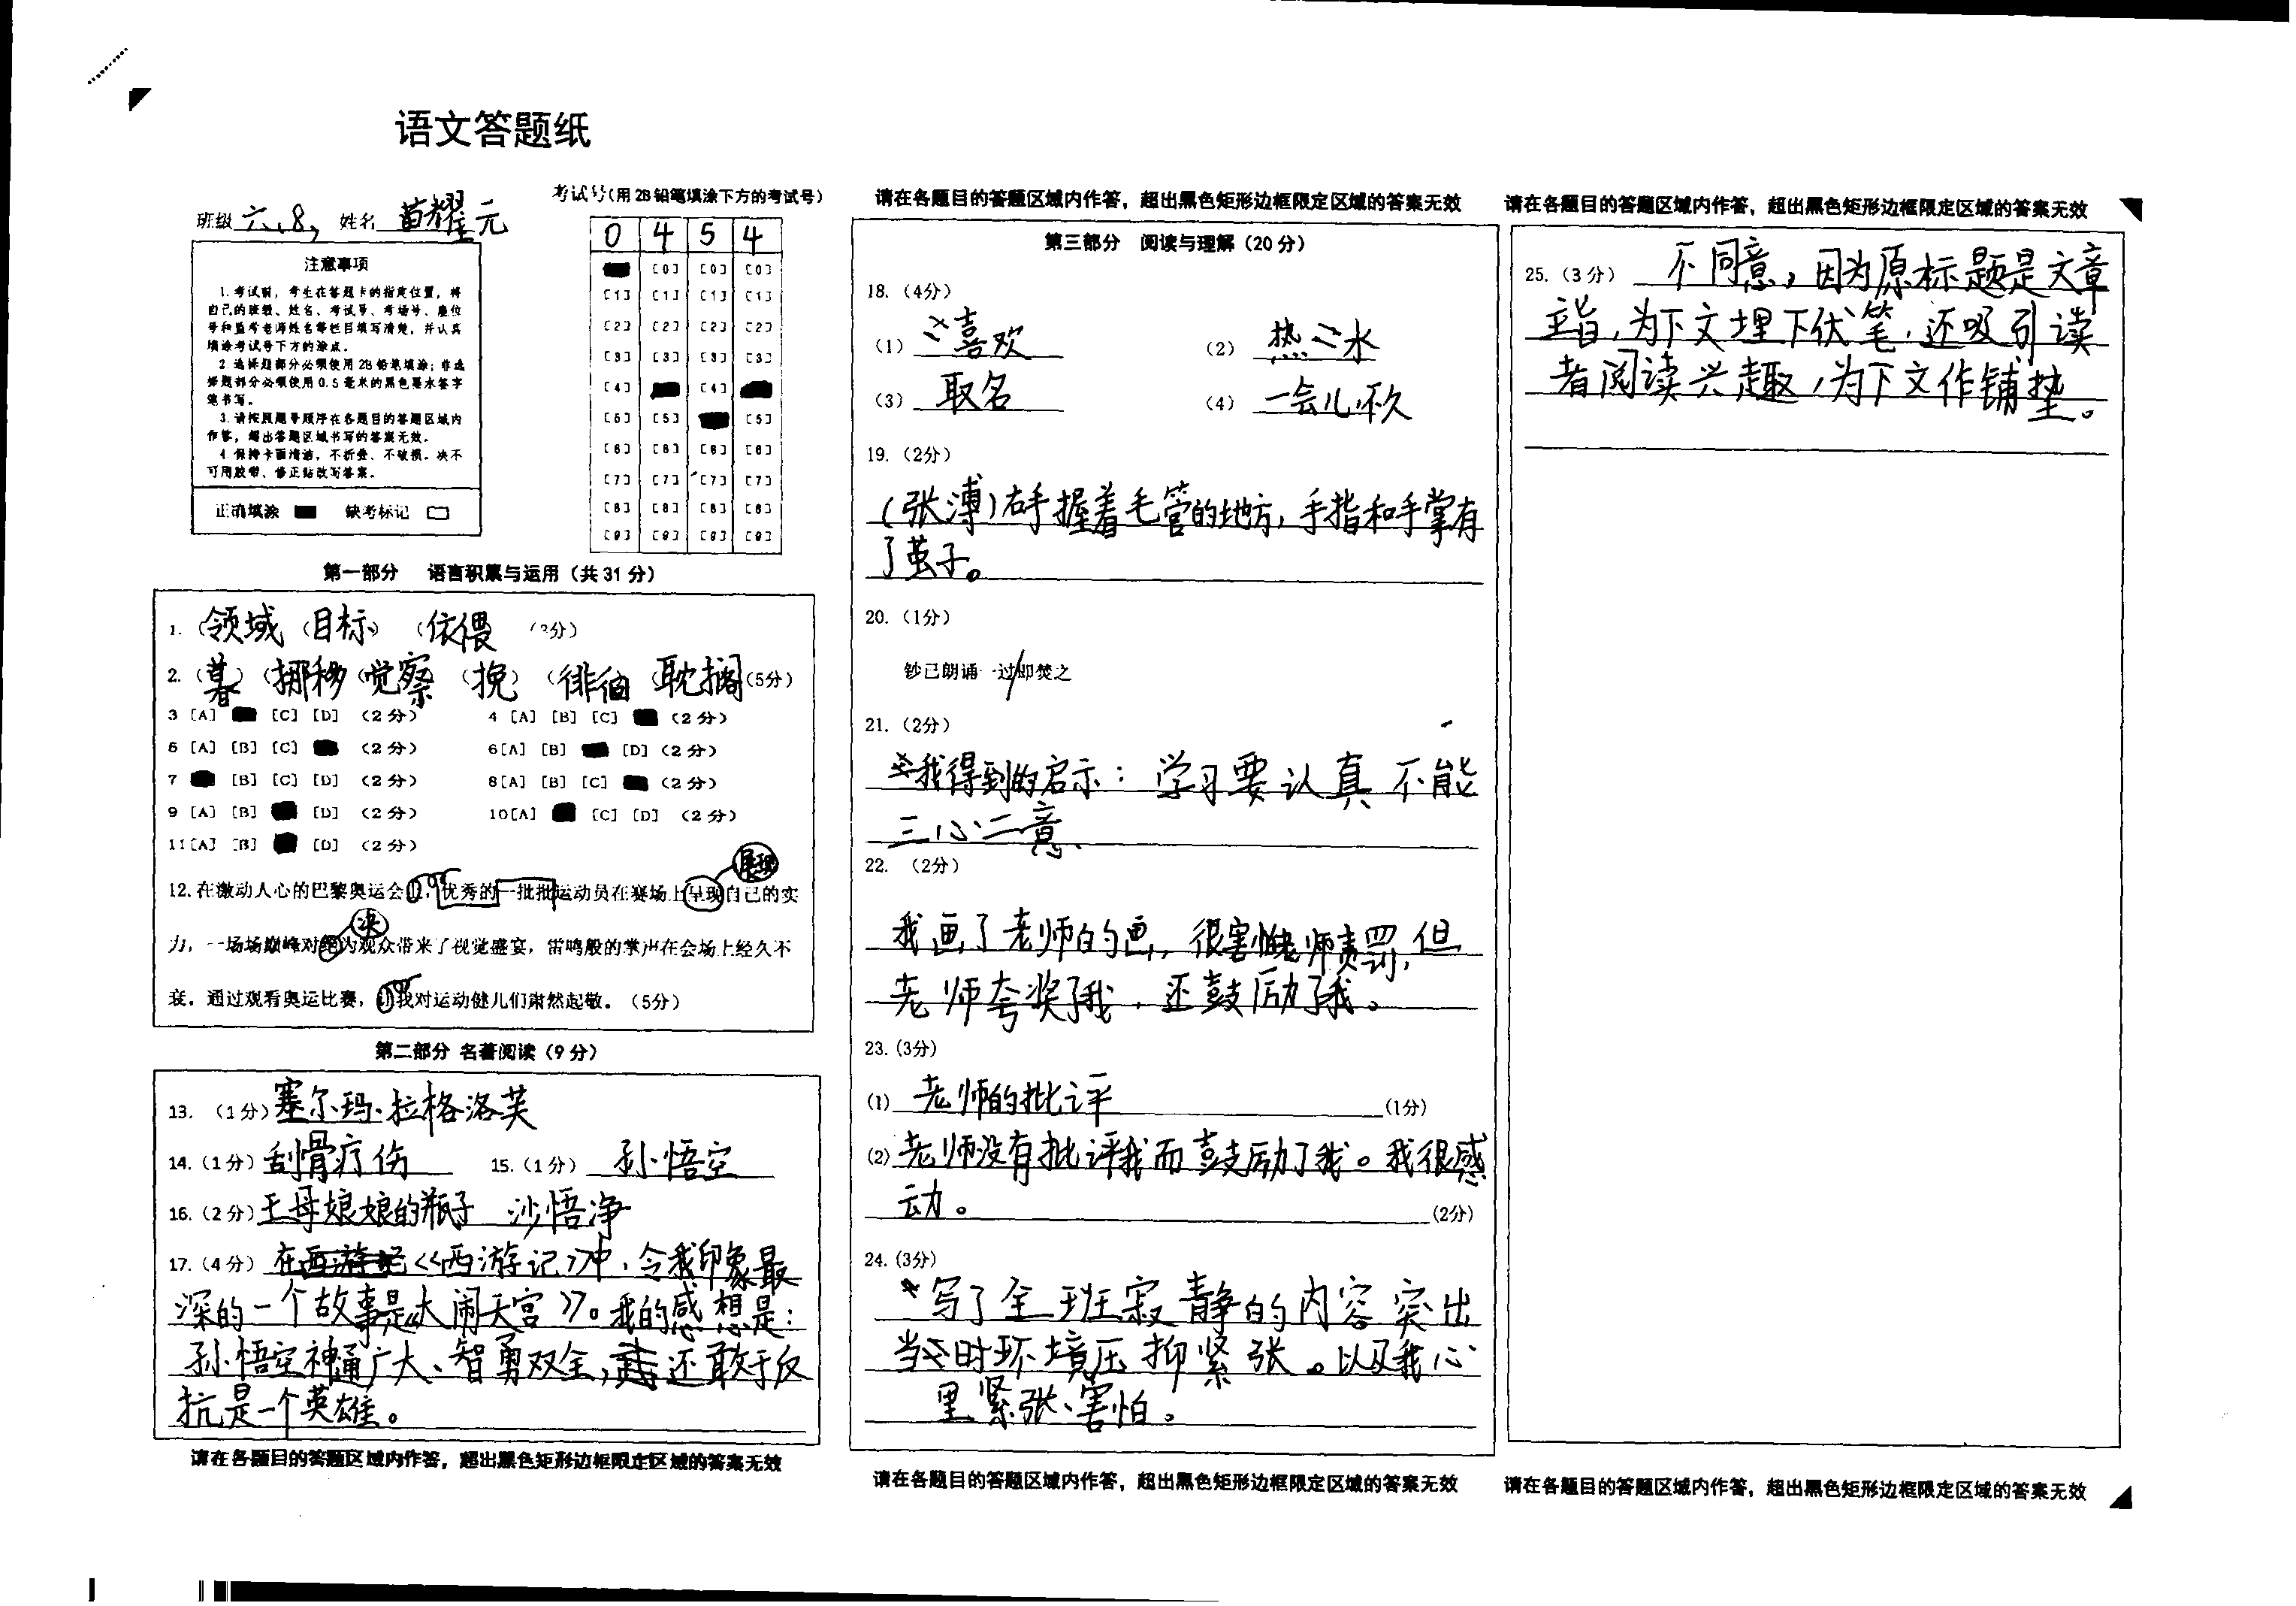 语文答题纸
班级 六、8, 姓名 苗耀元
考试号(用2B铅笔填涂下方的考试号)
0 4 5 4
[0] [0] [0]
[1] [1] [1] [1]
[2] [2] [2] [2]
[3] [3] [3] [3]
[4] [4]
[5] [5] [5]
[6] [6] [6] [6]
[7] [7] [7] [7]
[8] [8] [8] [8]
[9] [9] [9] [9]
注意事项
1.考试前,考生在答题卡的指定位置,将
自己的班级、姓名、考试号、考场号、座位
号和监考老师姓名等栏目填写清楚,并认真
填涂考试号下方的涂点。
2.选择题部分必须使用2B铅笔填涂;非选
择题部分必须使用0.5毫米的黑色墨水签字
笔书写。
3.请按照题号顺序在各题目的答题区域内
作答,超出答题区域书写的答案无效。
4.保持卡面清洁,不折叠、不破损。决不
可用胶带、修正贴改写答案。
正确填涂 缺考标记
第一部分 语言积累与运用(共31分)
1.(领域 (目标) (依偎 (3分)
2.(暮)(挪移(觉察 (挽)(徘徊(耽搁(5分)
3 [A] [C] [D] (2分) 4 [A] [B] [C] (2分)
5 [A] [B] [C] (2分) 6[A] [B] [D] (2分)
7 [B] [C] [D] (2分) 8[A] [B] [C] (2分)
9 [A] [B] [D] (2分) 10[A] [C] [D] (2分)
11[A] [B] [D] (2分)
展现
12.在激动人心的巴黎奥运会上,优秀的一批批运动员在赛场上呈现自己的实
决
力,一场场巅峰对绝为观众带来了视觉盛宴,雷鸣般的掌声在会场上经久不
衰。通过观看奥运比赛,让我对运动健儿们肃然起敬。(5分)
第二部分 名著阅读(9分)
13.(1分)塞尔玛·拉格洛芙
14.(1分)刮骨疗伤 15.(1分) 孙悟空
16.(2分)王母娘娘的瓶子 沙悟净
17.(4分) 在《西游记》中,令我印象最
深的一个故事是《大闹天宫》。我的感想是:
孙悟空神通广大、智勇双全,还敢于反
抗是一个英雄。
请在各题目的答题区域内作答,超出黑色矩形边框限定区域的答案无效
请在各题目的答题区域内作答,超出黑色矩形边框限定区域的答案无效
第三部分 阅读与理解(20分)
18.(4分)
(1) 喜欢 (2) 热水
(3) 取名 (4) 一会儿,不久
19.(2分)
(张溥)右手握着毛管的地方,手指和手掌有
了茧子。
20.(1分)
钞已朗诵一过/即焚之
21.(2分)
我得到的启示:学习要认真 不能
三心二意
22.(2分)
我画了老师的画,很害怕老师责罚,但
老师夸奖了我,还鼓励了我。
23.(3分)
(1) 老师的批评 (1分)
(2) 老师没有批评我而鼓励了我。我很感
动。 (2分)
24.(3分)
写了全班寂静的内容突出
当时环境压抑紧张。以及我心
里紧张、害怕。
请在各题目的答题区域内作答,超出黑色矩形边框限定区域的答案无效
请在各题目的答题区域内作答,超出黑色矩形边框限定区域的答案无效
25.(3分) 不同意,因为原标题是文章
主旨,为下文埋下伏笔,还吸引读
者阅读兴趣,为下文作铺垫。
请在各题目的答题区域内作答,超出黑色矩形边框限定区域的答案无效